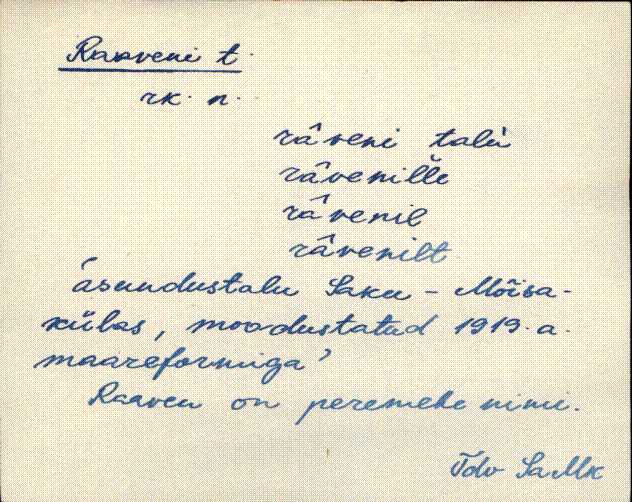 Raaveni t.
rk. n.
râveni talù
râvenil̆l̆e
râvenil
râvenilt
'asundustalu Saku - Mõisa-
külas, moodustatud 1919. a.
maareformiga'
Raaven on peremehe nimi.